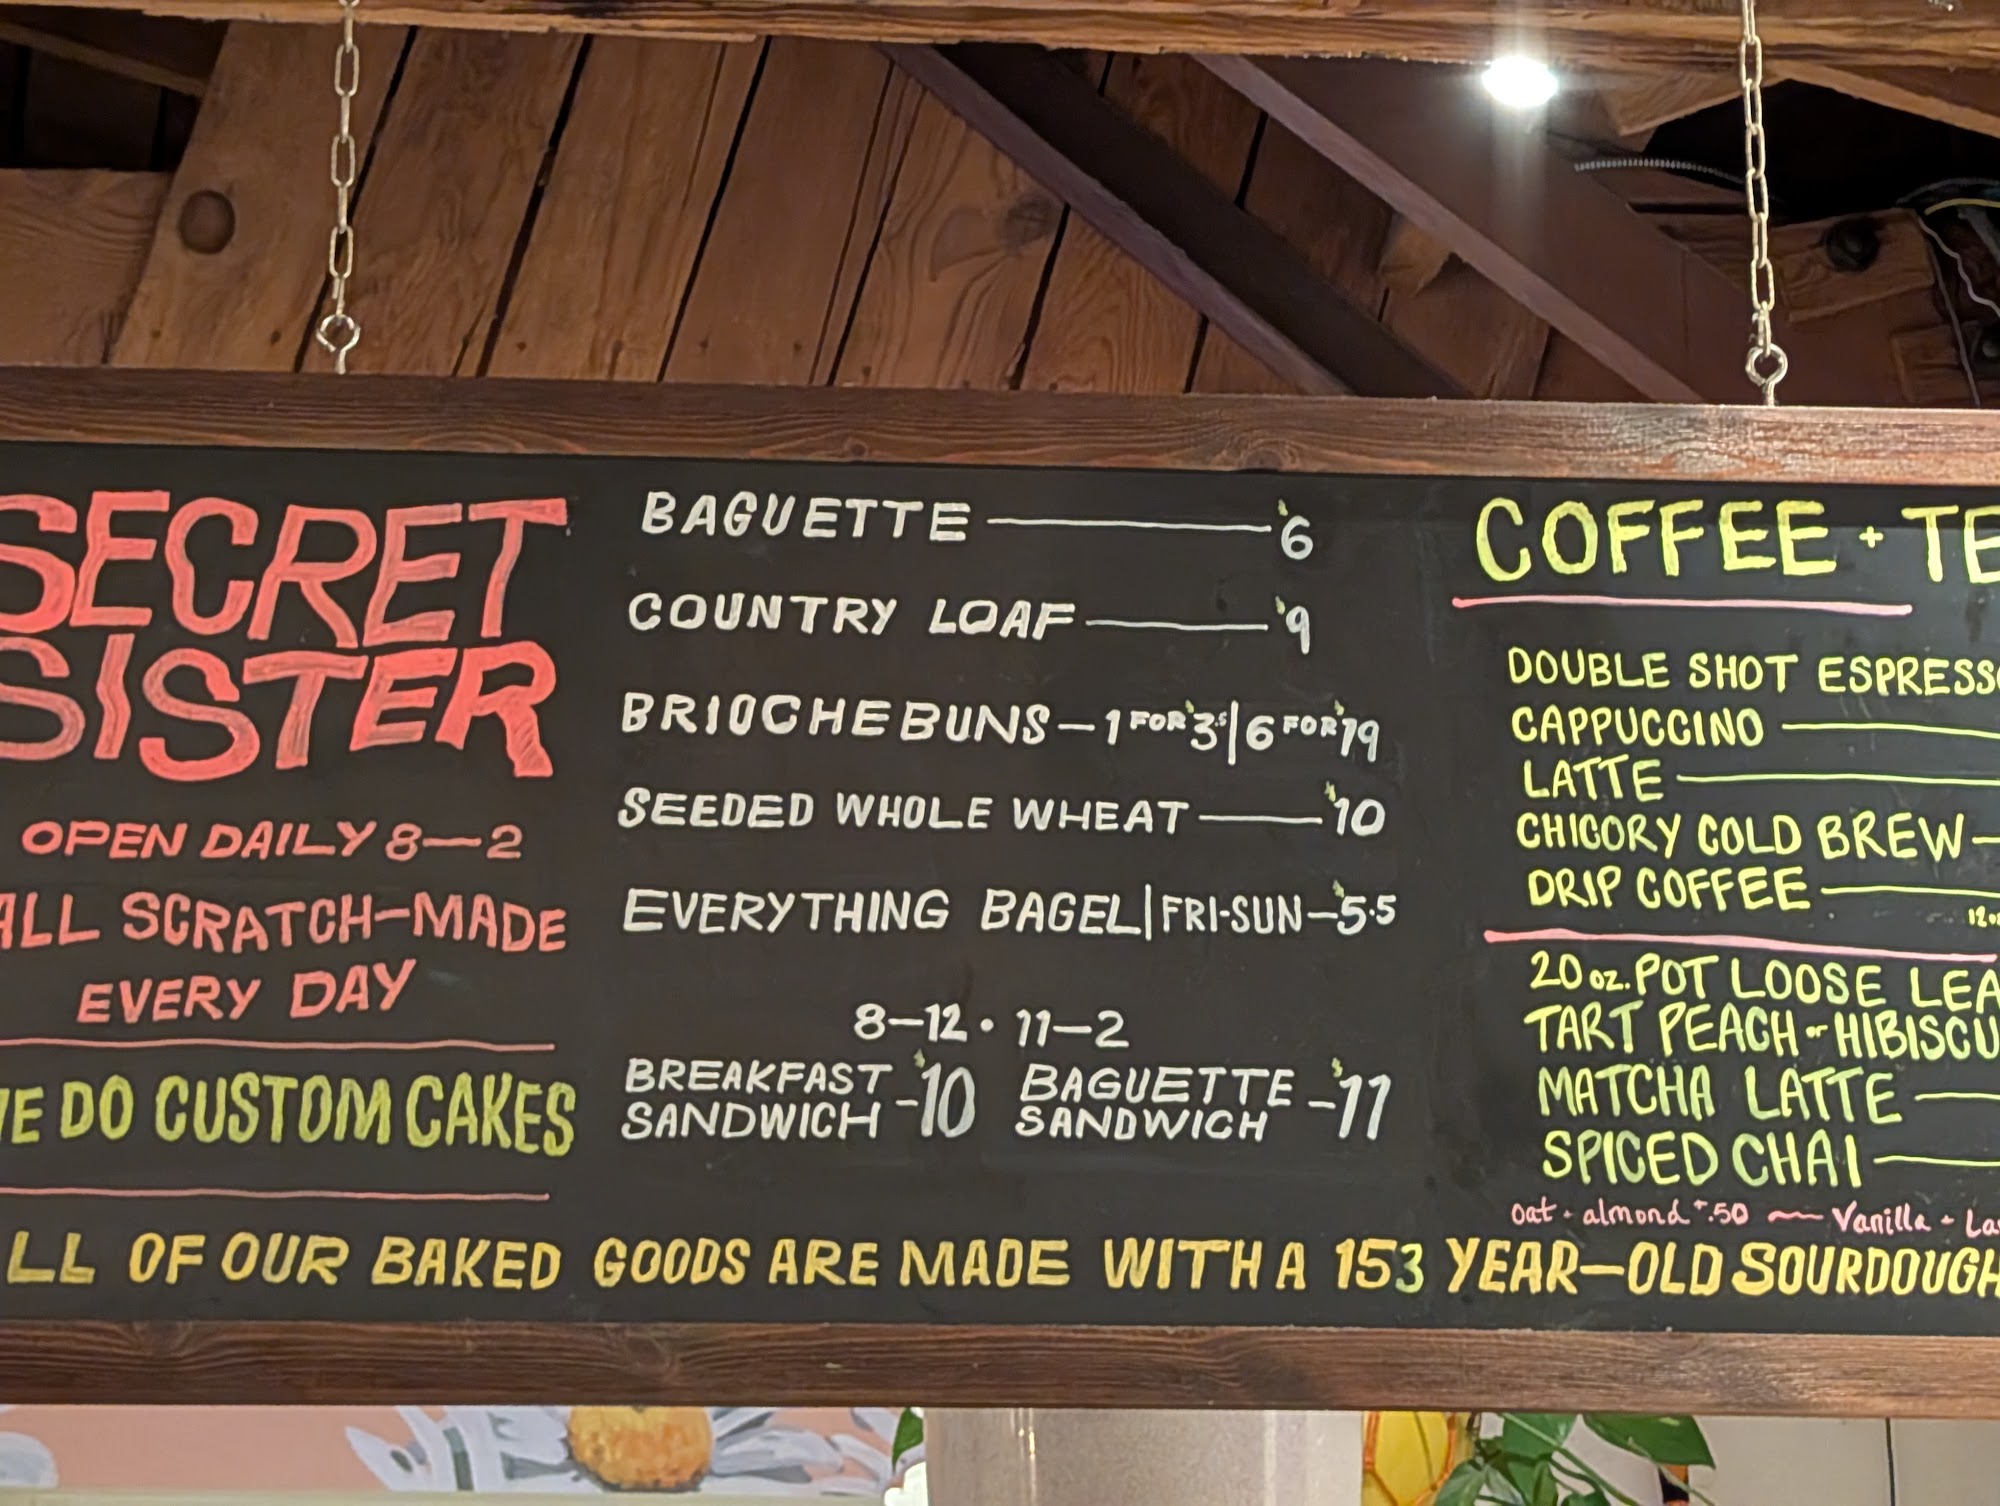 SECRET
SISTER
OPEN DAILY 8—2
ALL SCRATCH-MADE
EVERY DAY
WE DO CUSTOM CAKES
BAGUETTE — $6
COUNTRY LOAF — $9
BRIOCHE BUNS — 1 FOR $3.5 | 6 FOR $19
SEEDED WHOLE WHEAT — $10
EVERYTHING BAGEL | FRI-SUN — $5.5
8—12 • 11—2
BREAKFAST SANDWICH — $10
BAGUETTE SANDWICH — $11
COFFEE + TE
DOUBLE SHOT ESPRESSO
CAPPUCCINO —
LATTE —
CHICORY COLD BREW —
DRIP COFFEE —
12 oz
20 oz. POT LOOSE LEA
TART PEACH or HIBISCU
MATCHA LATTE —
SPICED CHAI —
oat + almond +.50 — Vanilla + La
ALL OF OUR BAKED GOODS ARE MADE WITH A 153 YEAR-OLD SOURDOUGH